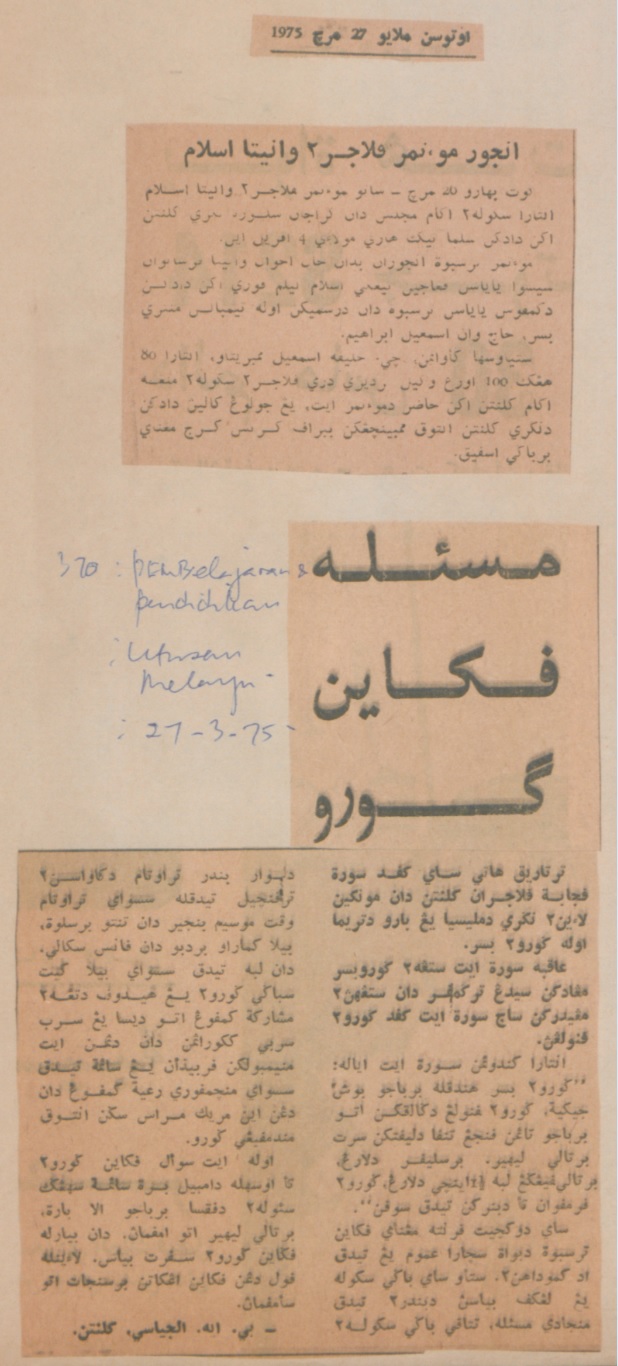 اوتوسن ملايو 27 مرچ 1975
انجور موءتمر فلاجر٢ وانيتا اسلام
كوت بهارو تك مرچ ـ ساتو موءتمر فلاجر٢ وانيتا اسلام
انتارا سكوله٢ اكام مجلس دان كراجأن سلوروه نكري كلنتن
اكن دادكن سلما تيك هاري مولاءي 4 افريل اين.
موءتمر ترسبوة انجوران بدان حال احوال وانيتا فرساتوان
سيسوا ياياسن فڠاجين تيڠڬي اسلام نيلم فوري اكن د
دكمفوس ياياسن ترسبوة دان درسميكن اوله تيمبالن منتري
بسر، حاج وان اسمعيل ابراهيم.
ستياوسها كاواتن، چيء حليمه اسمعيل ممبريتاو، انتارا 80
هڠڬ 100 اورڠ واكيل تردير دري فلاجر٢ سكوله٢ منڠه
اكام كلنتن اكن حاضر دموءتمر ايت، يڠ جولوڠ كالين دادكن
دنڬري كلنتن اونتوق ممبينچڠكن ببراف كرتس كرج مڠناي
برباڬي اسفيق.
370 : PEMBelajaran &
pendidikan
: Utusan
Melayu
: 27-3-75
مسئله
فكاين
ڬورو
ترتاريق هاتي ساي كفد سورة
فجابة فلاجران كلنتن دان موڠكين
لاءين٢ نڬري دمليسيا يڠ بارو دتريما
اوله ڬورو٢ بسر.
عاقبة سورة ايت ستڠه٢ ڬوروبسر
مڠادكن سيدڠ تركمفر دان ستڠهن٢
مڠيدركن ساج سورة ايت كفد ڬورو٢
فنولڠن.
انتارا كندوڠن سورة ايت اياله:
"ڬورو٢ بسر هندقله برباجو بوش
جيكيه، ڬورو٢ فنولڠ دڬالقكن اتو
برباجو تاڠن فنجڠ تنفا دليفتكن سرت
برتالي ليهير. برسليفر دلارڠ،
برتالي فيڠڬڠ لبه ١½اينچي دلارڠ، ڬورو٢
فرمفوان تا دبنركن تيدق سوفن".
ساي دوكچيت فرنته مڠناي فكاين
ترسبوة دبواة سچارا عموم يڠ تيدق
اد كموداهن٢. ستاو ساي باڬي سكوله
يڠ لڠكف بياسن دبندر٢ تيدق
منجادي مسئله، تتافي باڬي سكوله٢
دلوار بندر تراوتام دكاواسن٢
ترڤنچيل تيدقله سسواي تراوتام
وقت موسيم بنجير دان تنتو برسلوة،
بيلا كماراو بردبو دان فانس سكالي.
دان لبه تيدق سسواي بيلا كيت
سباڬي ڬورو٢ يڠ هيدوف دتڠه٢
مشاركة كمفوڠ اتو ديسا يڠ سرب
سربي ككورڠن دان دڠن ايت
منيمبولكن فربيذأن يڠ ساڠة تيدق
سسواي منچمفوري رعية كمفوڠ دان
دڠن اين مريك مراس سڬن اونتوق
مندمفيڠي ڬورو.
اوله ايت سوال فكاين ڬورو٢
تا اوسهله دامبيل برة ساڠة سهڠڬ
ڬورو٢ دفقسا برباجو الا بارة،
برتالي ليهير اتو امفمان. دان بيارله
فكاين ڬورو٢ سفرت بياس. لاءينله
فول دڠن فكاين اڠكاتن برسنجات اتو
سأمفمان.
ـ بي. انه. الجياسي، كلنتن.